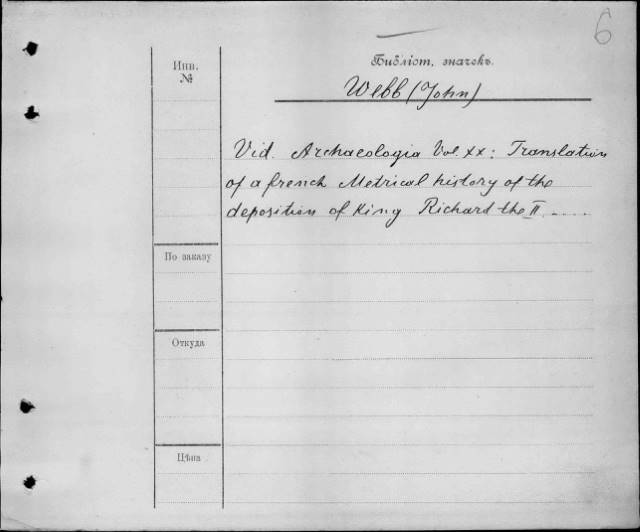 6
Библіот. значекъ.
Инв.
№
Webb (John)
Vid. Archaeologia Vol. XX: Translation
of a french Metrical history of the
deposition of King Richard the II.....
По заказу
Откуда
Цѣна